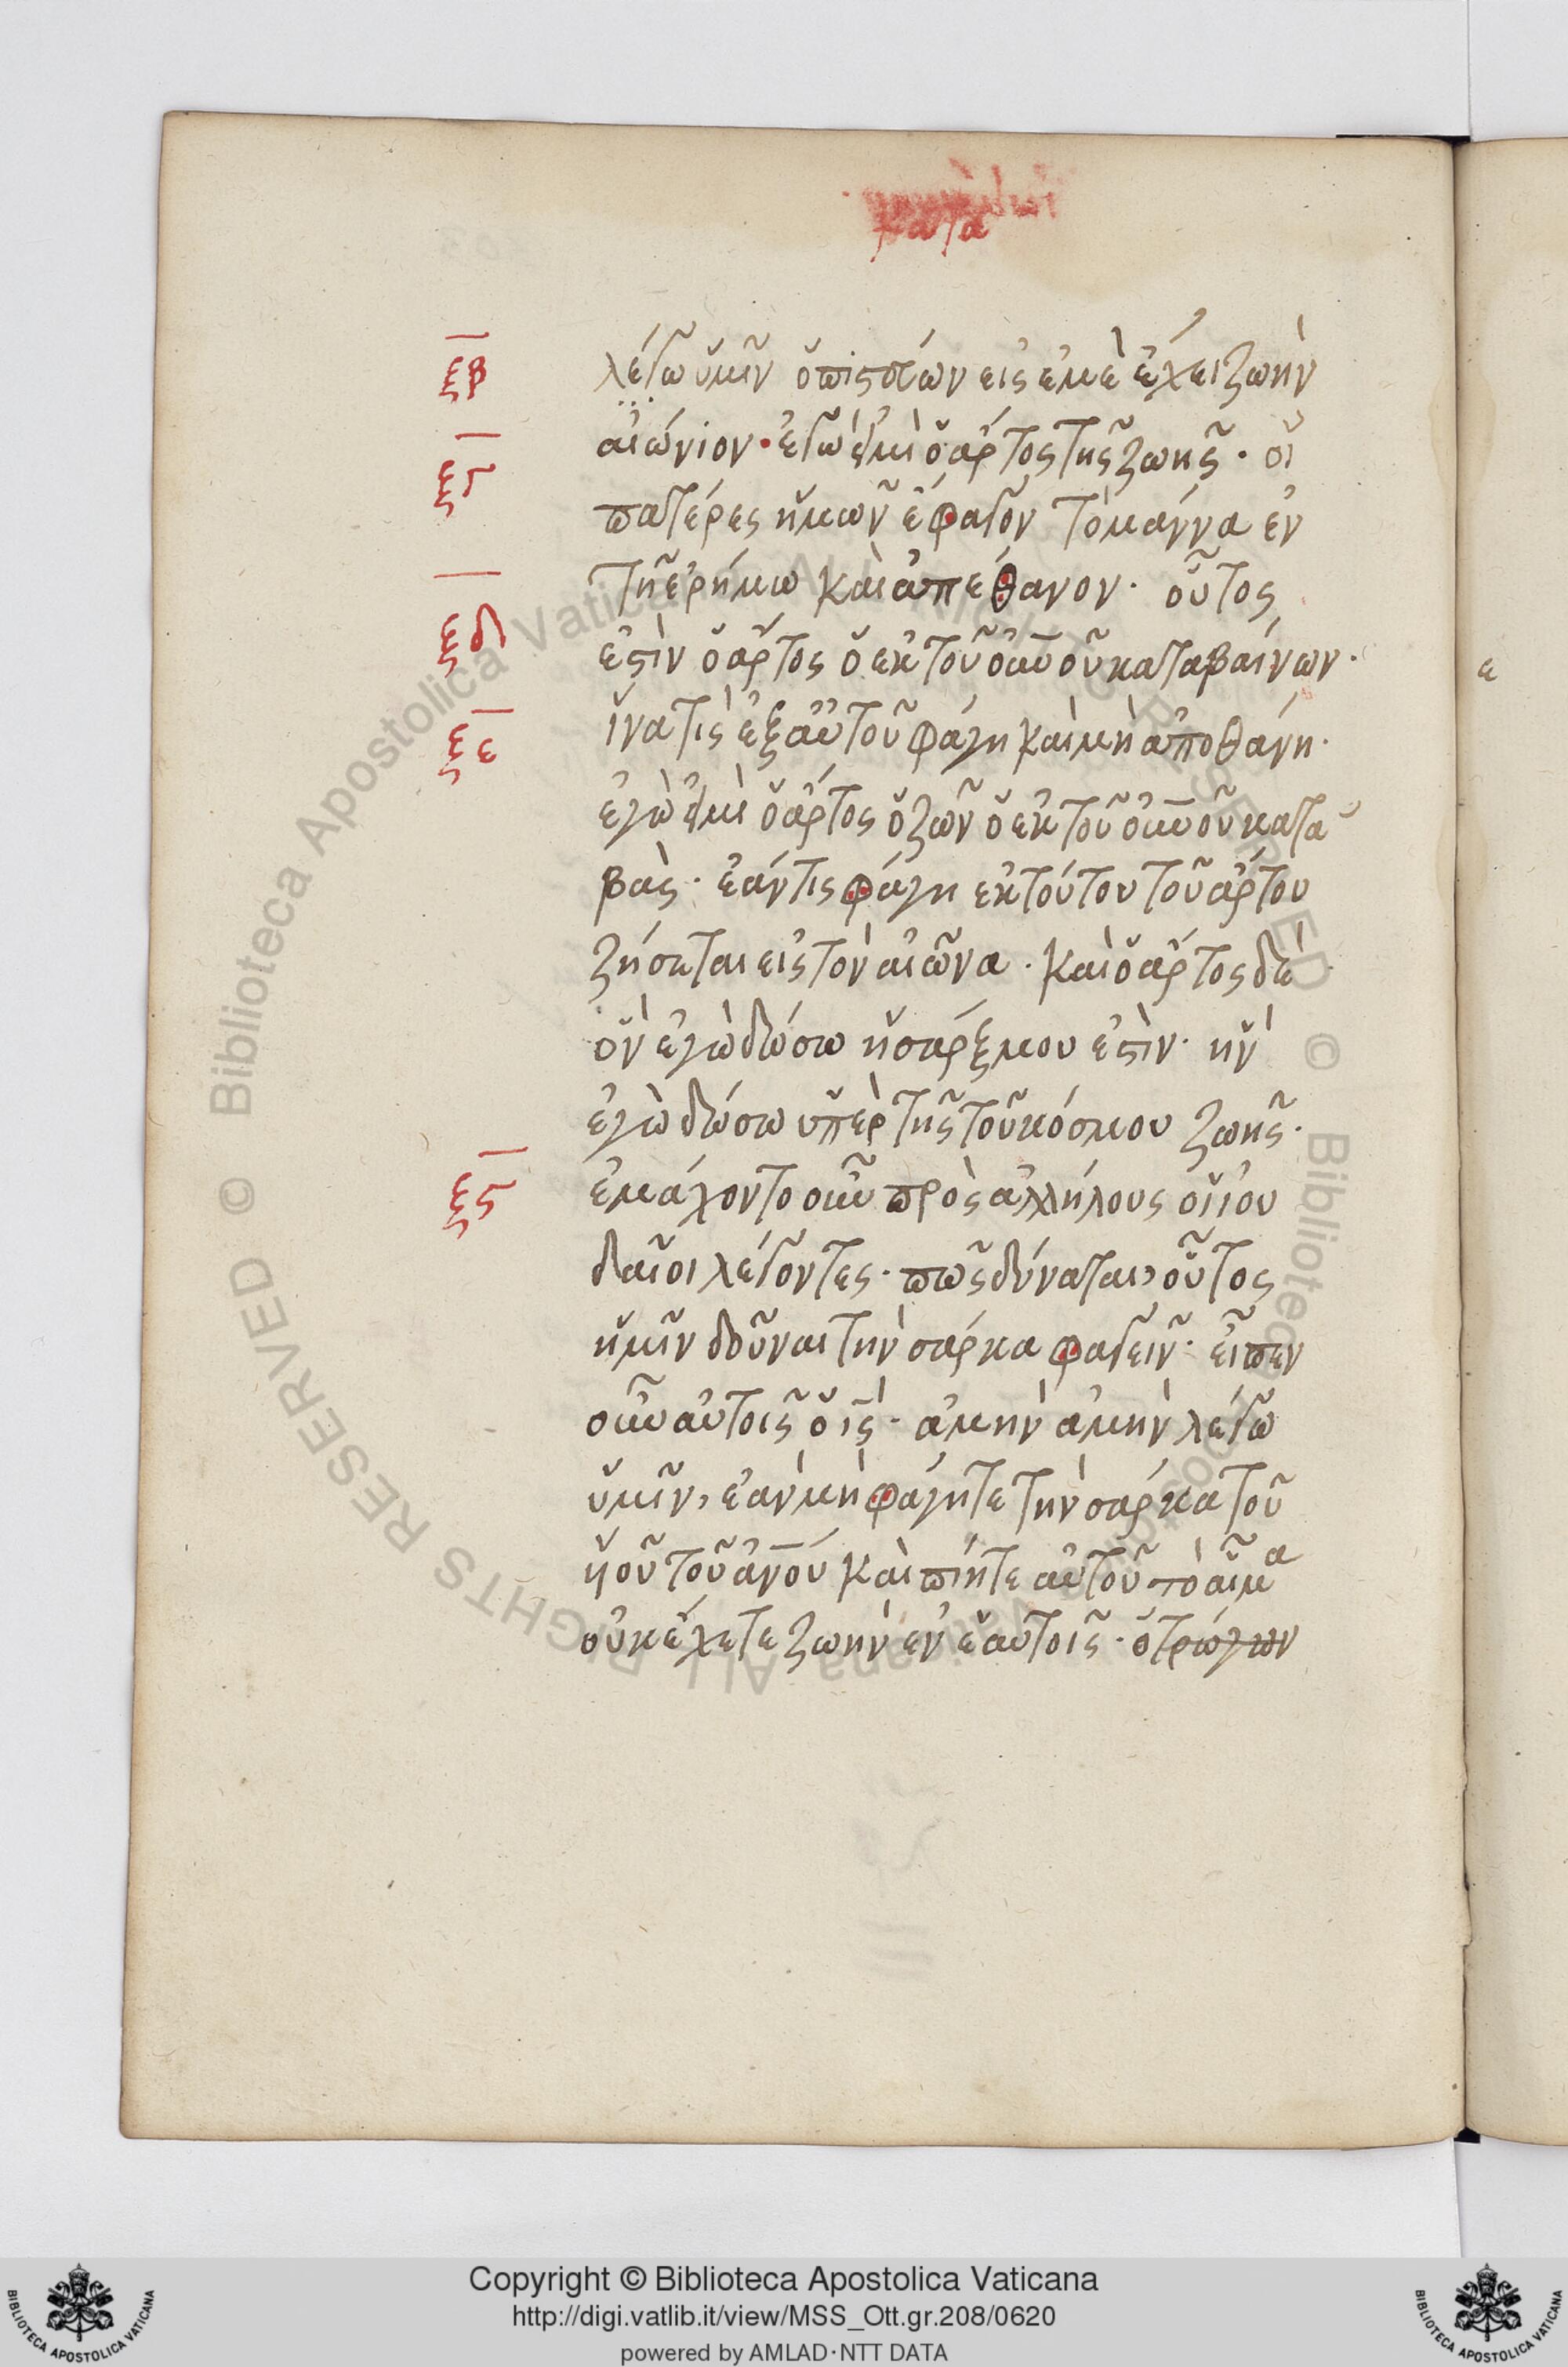 κατὰ
ξβ λέγω ὑμῖν ὁ πιστεύων εἰς ἐμὲ ἔχει ζωὴν
αἰώνιον· ἐγώ εἰμι ὁ ἄρτος τῆς ζωῆς· οἱ
ξγ
πατέρες ἡμῶν ἔφαγον τὸ μάννα ἐν
τῆ ἐρήμω καὶ ἀπέθανον· οὗτος
ξδ
ἐστὶν ὁ ἄρτος ὁ ἐκ τοῦ οὐνοῦ καταβαίνων·
ξε ἵνα τὶς ἐξ αὐτοῦ φάγη καὶ μὴ ἀποθάνη·
ἐγώ εἰμι ὁ ἄρτος ὁ ζῶν ὁ ἐκ τοῦ οὐνοῦ κατα
βὰς· ἐάν τις φάγη ἐκ τούτου τοῦ ἄρτου
ζήσεται εἰς τὸν αἰῶνα· καὶ ὁ ἄρτος δὲ
ὃν ἐγὼ δώσω ἡ σάρξ μου ἐστὶν· ἣν
ἐγὼ δώσω ὑπὲρ τῆς τοῦ κόσμου ζωῆς·
ξς ἐμάχοντο οὖν πρὸς ἀλλήλους οἱ ἰου
δαῖοι λέγοντες· πῶς δύναται οὗτος
ἡμῖν δοῦναι τὴν σάρκα φαγεῖν· εἶπεν
οὖν αὐτοῖς ὁ ις· ἀμὴν ἀμὴν λέγω
ὑμῖν, ἐὰν μὴ φάγητε τὴν σάρκα τοῦ
υἱοῦ τοῦ ἀνου καὶ πίητε αὐτοῦ τὸ αἷμα
οὐκ ἔχετε ζωὴν ἐν ἑαυτοῖς· ὁ τρώγων
ε
Copyright © Biblioteca Apostolica Vaticana
http://digi.vatlib.it/view/MSS_Ott.gr.208/0620
powered by AMLAD·NTT DATA
BIBLIOTECA APOSTOLICA VATICANA
BIBLIOTECA APOSTOLICA VATICANA